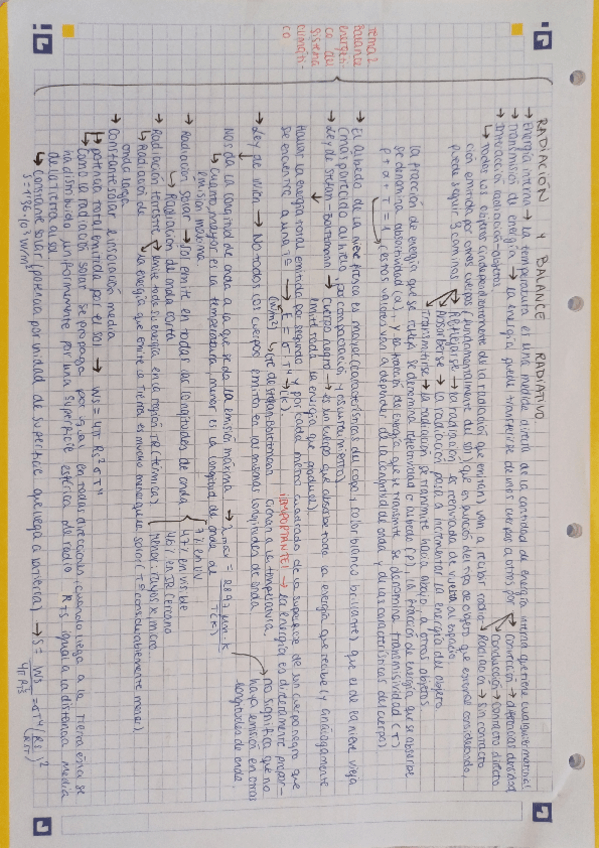 RADIACIÓN Y BALANCE RADIATIVO
Tema 2
Balance
energéti-
co del
sistema
climáti-
co
→ Energía interna → la temperatura es una medida directa de la cantidad de energía interna que tiene cualquier material
→ Transmisión de energía → la energía puede transferirse de unos cuerpos a otros por → convección → diferencias densidad
→ conducción → contacto directo
→ Radiación → sin contacto
→ Interacción radiación-objetos.
↳ Todos los objetos (independientemente de la radiación que emiten) van a recibir radia-
ción emitida por otros cuerpos (fundamentalmente del sol) que en función del tipo de objeto que estemos considerando,
puede seguir 3 caminos
Reflejarse → la radiación es reenviada de vuelta al espacio
Absorberse → la radiación pasa a incrementar la energía del objeto
Transmitirse → la radiación se transmite hacia abajo, a otros objetos.
La fracción de energía que se refleja se denomina reflectividad o albedo (ρ), la fracción de energía que se absorbe
se denomina absortividad (α), y la fracción de energía que se transmite se denomina transmisividad (τ)
ρ + α + τ = 1 (estos valores van a depender de la longitud de onda y de las características del cuerpo).
→ El albedo de la nieve fresca es mayor (características del copo y color blanco brillante) que el de la nieve vieja
(más parecido al hielo por compactación y escurrimiento)
→ Ley de Stefan-Boltzmann → Cuerpo negro → es un cuerpo que absorbe toda la energía que recibe y análogamente
emite toda la energía que produce).
Hallar la energía total emitida por segundo y por cada metro cuadrado de la superficie de un cuerpo negro que
se encuentre a una Tª → E = σT⁴ → (K).
(W/m²) ↳ cte de Stefan-Boltzmann
¡IMPORTANTE! → la energía es directamente propor-
cional a la temperatura.
→ Ley de Wien → No todos los cuerpos emiten en las mismas longitudes de onda
Nos da la longitud de onda a la que se da la emisión máxima → λmax = 2897 μm·K / T(K)
→ no significa que no
haya emisión en otras
longitudes de onda.
↳ Cuanto mayor es la temperatura, menor es la longitud de onda de
emisión máxima
→ Radiación solar → sol emite en todas las longitudes de onda
7% en UV
47% en visible
46% en IR cercano
menor: Rayos X, micro
↳ Radiación de onda corta
→ Radiación terrestre → emite toda su energía en la región IR (térmica)
↳ Radiación de
onda larga
la energía que emite la Tierra es mucho menor que la solar (Tª considerablemente menor)
→ Constante solar e insolación media
↳ potencia total emitida por el sol → Ws = 4π Rs² σT⁴
↳ Como la radiación solar se propaga por igual en todas direcciones, cuando llega a la Tierra ésta se
ha distribuido uniformemente por una superficie esférica de radio RTS igual a la distancia media
de la tierra al sol
↳ Constante solar (potencia por unidad de superficie que llega a la tierra) → S = Ws / 4πR²TS = σT⁴ (Rs / RTS)²